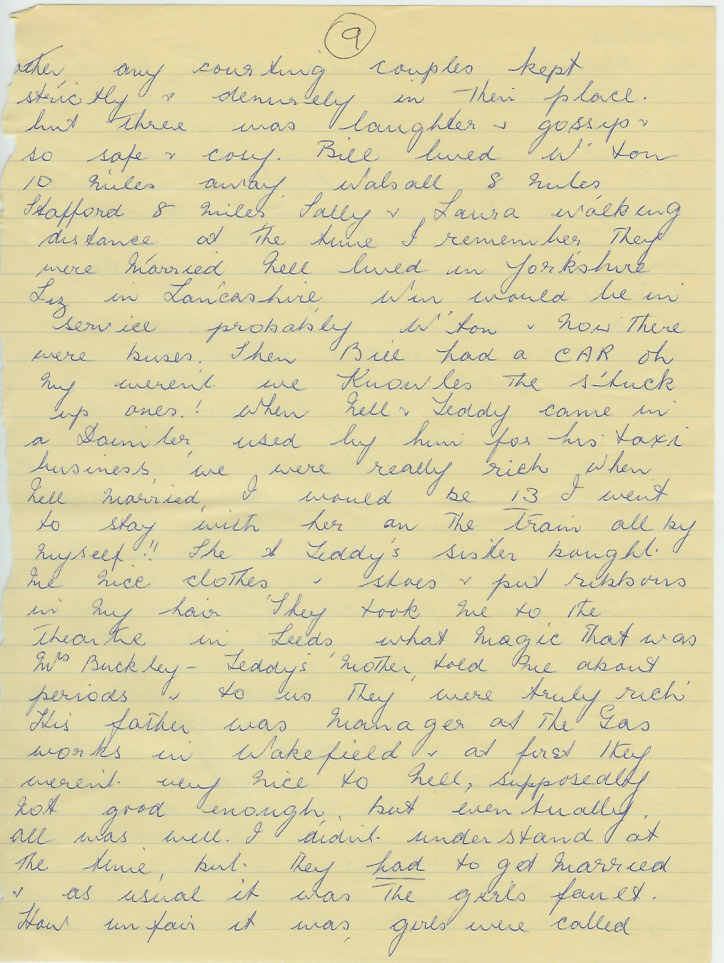 9
other any courting couples kept
strictly & demurely in their place.
but three was laughter & gossip &
so safe & cosy. Bill lived W'ton
10 miles away, Walsall 8 miles
Stafford 8 miles, Sally & Laura walking
distance at the time I remember They
were Married Nell lived in Yorkshire
Liz in Lancashire Win would be in
service probably W'ton & Now There
were buses. Then Bill had a CAR oh
My weren't we Knowles The stuck
up ones.! When Nell & Teddy came in
a Daimler, used by him for his taxi
business, we were really rich when
Nell married, I would be 13 I went
to stay with her on The Train all by
Myself!! She & Teddy's sister bought.
Me Nice clothes & shoes & put ribbons
in My hair They took Me to the
theatre in Leeds what Magic That was
Mrs Buckley - Teddy's Mother, told Me about
periods & to us They were truly rich
His father was Manager at The Gas
works in Wakefield & at first They
weren't very Nice to Nell, supposedly
Not good enough, but eventually,
all was well. I didn't understand at
The time, but. They had to get Married
& as usual it was The girls fault.
How unfair it was, girls were called